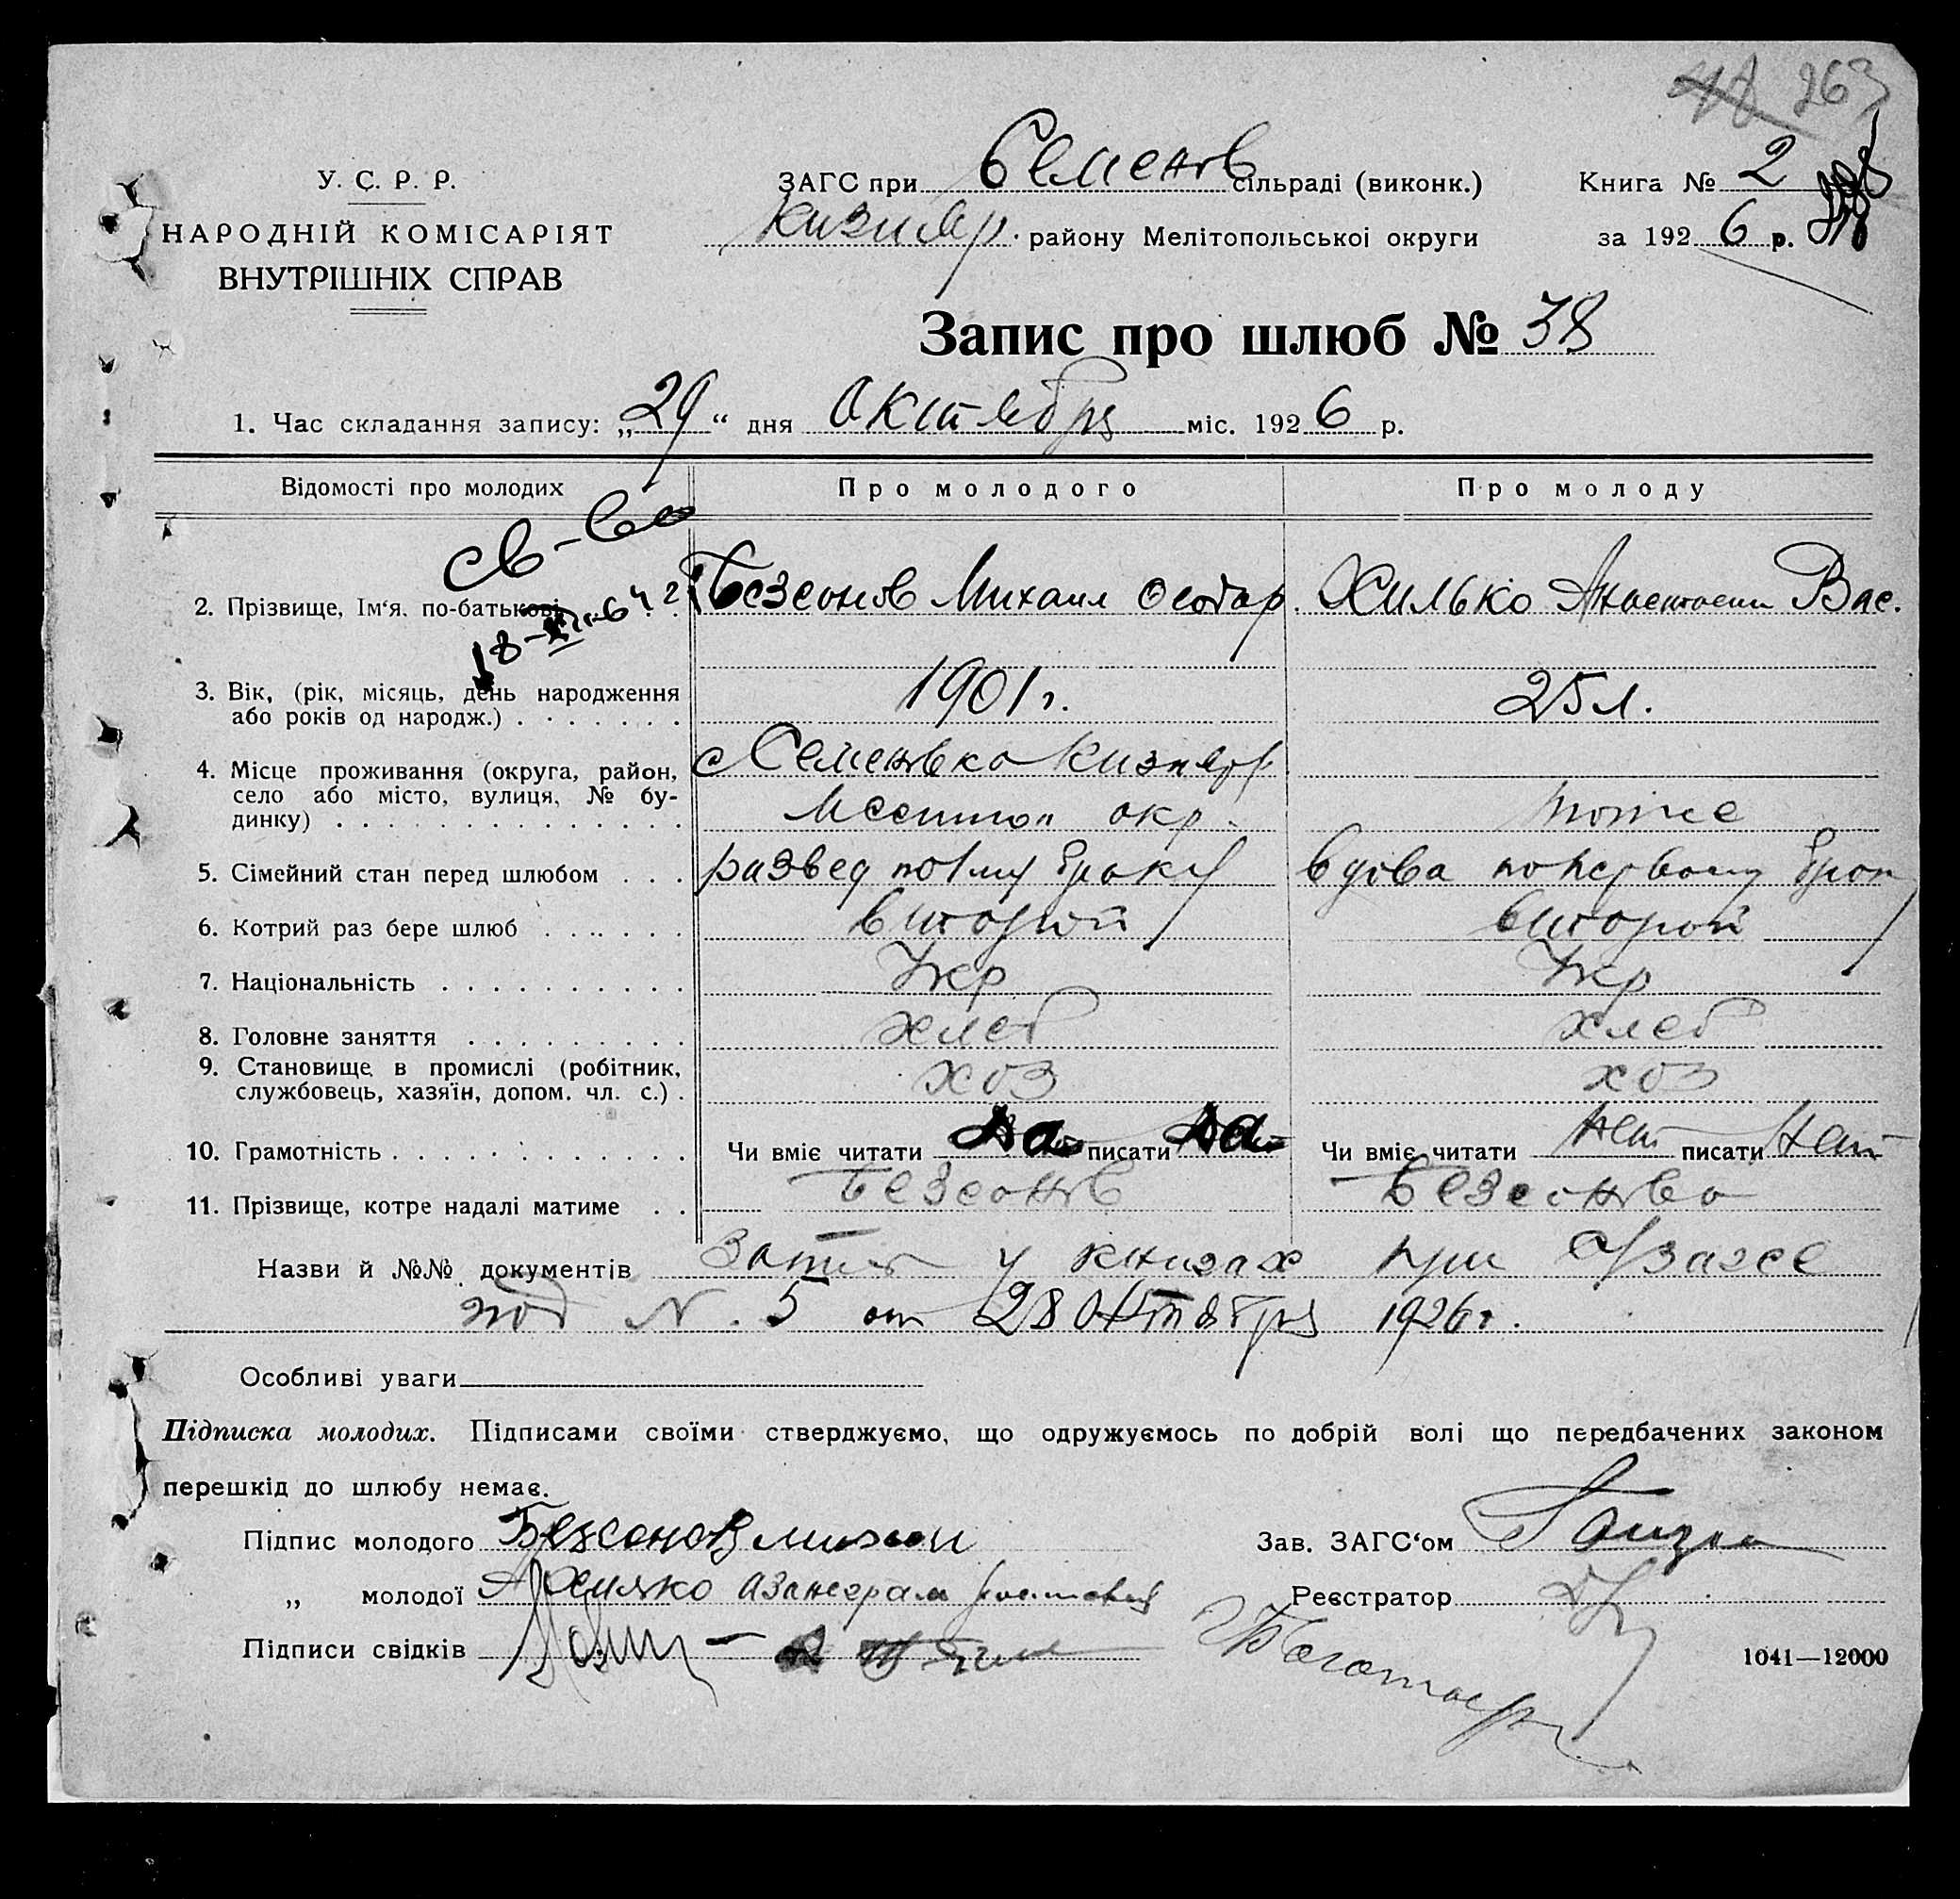 263
У. С. Р. Р.
НАРОДНІЙ КОМІСАРІЯТ
ВНУТРІШНІХ СПРАВ
ЗАГС при Семенов сільраді (виконк.)
Кизияр. району Мелітопольської округи
Книга № 2
за 1926 р.
Запис про шлюб № 38
1. Час складання запису: „29“ дня Октября міс. 1926 р.
Відомості про молодих
Про молодого
Про молоду
св-во
2. Прізвище, Ім'я. по-батькові
Безсонов Михаил Феодор.
Хилько Анастасия Вас.
3. Вік, (рік, місяць, день народження
або років од народж.)
1901 г.
25 л.
4. Місце проживання (округа, район,
село або місто, вулиця, № бу-
динку)
с Семеновка Кизияр
Мелитоп окр.
тоже
5. Сімейний стан перед шлюбом
развед по 1му браку
вдова по первому брак
6. Котрий раз бере шлюб
второй
второй
7. Національність
Укр
Укр
8. Головне заняття
хлеб
хлеб
9. Становище в промислі (робітник,
службовець, хазяїн, допом. чл. с.)
хоз
хоз
10. Грамотність
Чи вміє читати да писати да
Чи вміє читати нет писати нет
11. Прізвище, котре надалі матиме
Безсонов
Безсонова
Назви й №№ документів Запись у книгах при Загсе
под N. 5 от 28 Октября 1926 г.
Особливі уваги
Підписка молодих. Підписами своїми стверджуємо, що одружуємось по добрій волі що передбачених законом
перешкід до шлюбу немає.
Підпис молодого Безсонов
„ молодої Хилько
Підписи свідків
Зав. ЗАГС'ом
Реєстратор
1041—12000